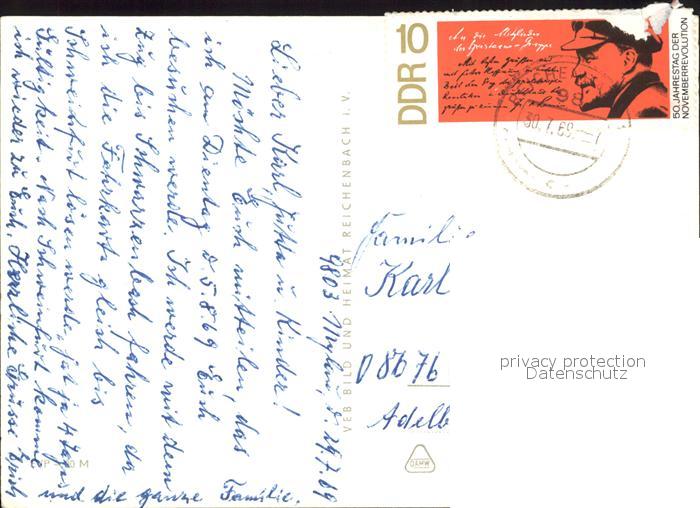 9803 Mylau, d. 29.7.69
Lieber Karl, Jutta u. Kinder!
Möchte Euch mitteilen, das
ich am Dienstag d. 5.8.69 Euch
besuchen werde. Ich werde mit dem
Zug bis Schwarzenbach fahren, da
ich die Fahrkarte gleich bis
Schweinfurt lösen werde, hat ja 4 Tage
Gültigkeit. Nach Schweinfurt komme
ich wieder zu Euch. Herzliche Grüsse Erich
und die ganze Familie.
VEB BILD UND HEIMAT REICHENBACH i. V.
DDR 10
50. JAHRESTAG DER
NOVEMBERREVOLUTION
An die Mitglieder
der Spartacus-Gruppe
30.7.69
Familie
Karl
D 8676
Adelb
privacy protection
Datenschutz
DAMW